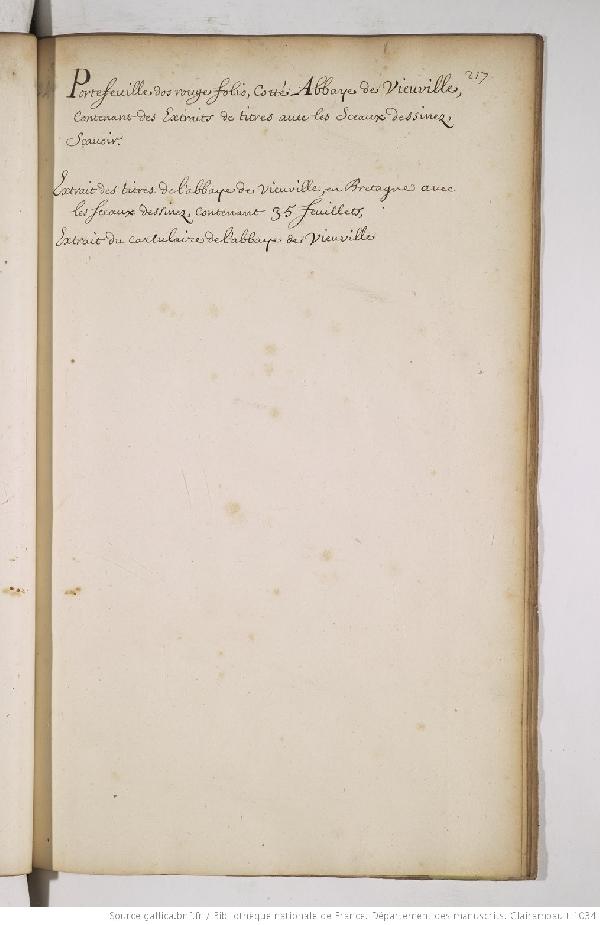 217.
Portefeuille dos rouge folio, Cotté Abbaye de Vieuville,
Contenant des Extraits de titres avec les Sceaux dessinez,
Scavoir.
Extrait des titres de l'abbaye de Vieuville, en Bretagne avec
les sceaux dessinez, contenant 35 feuillets,
Extrait du cartulaire de l'abbaye de Vieuville
Source gallica.bnf.fr / Bibliothèque nationale de France. Département des manuscrits. Clairambault 1034